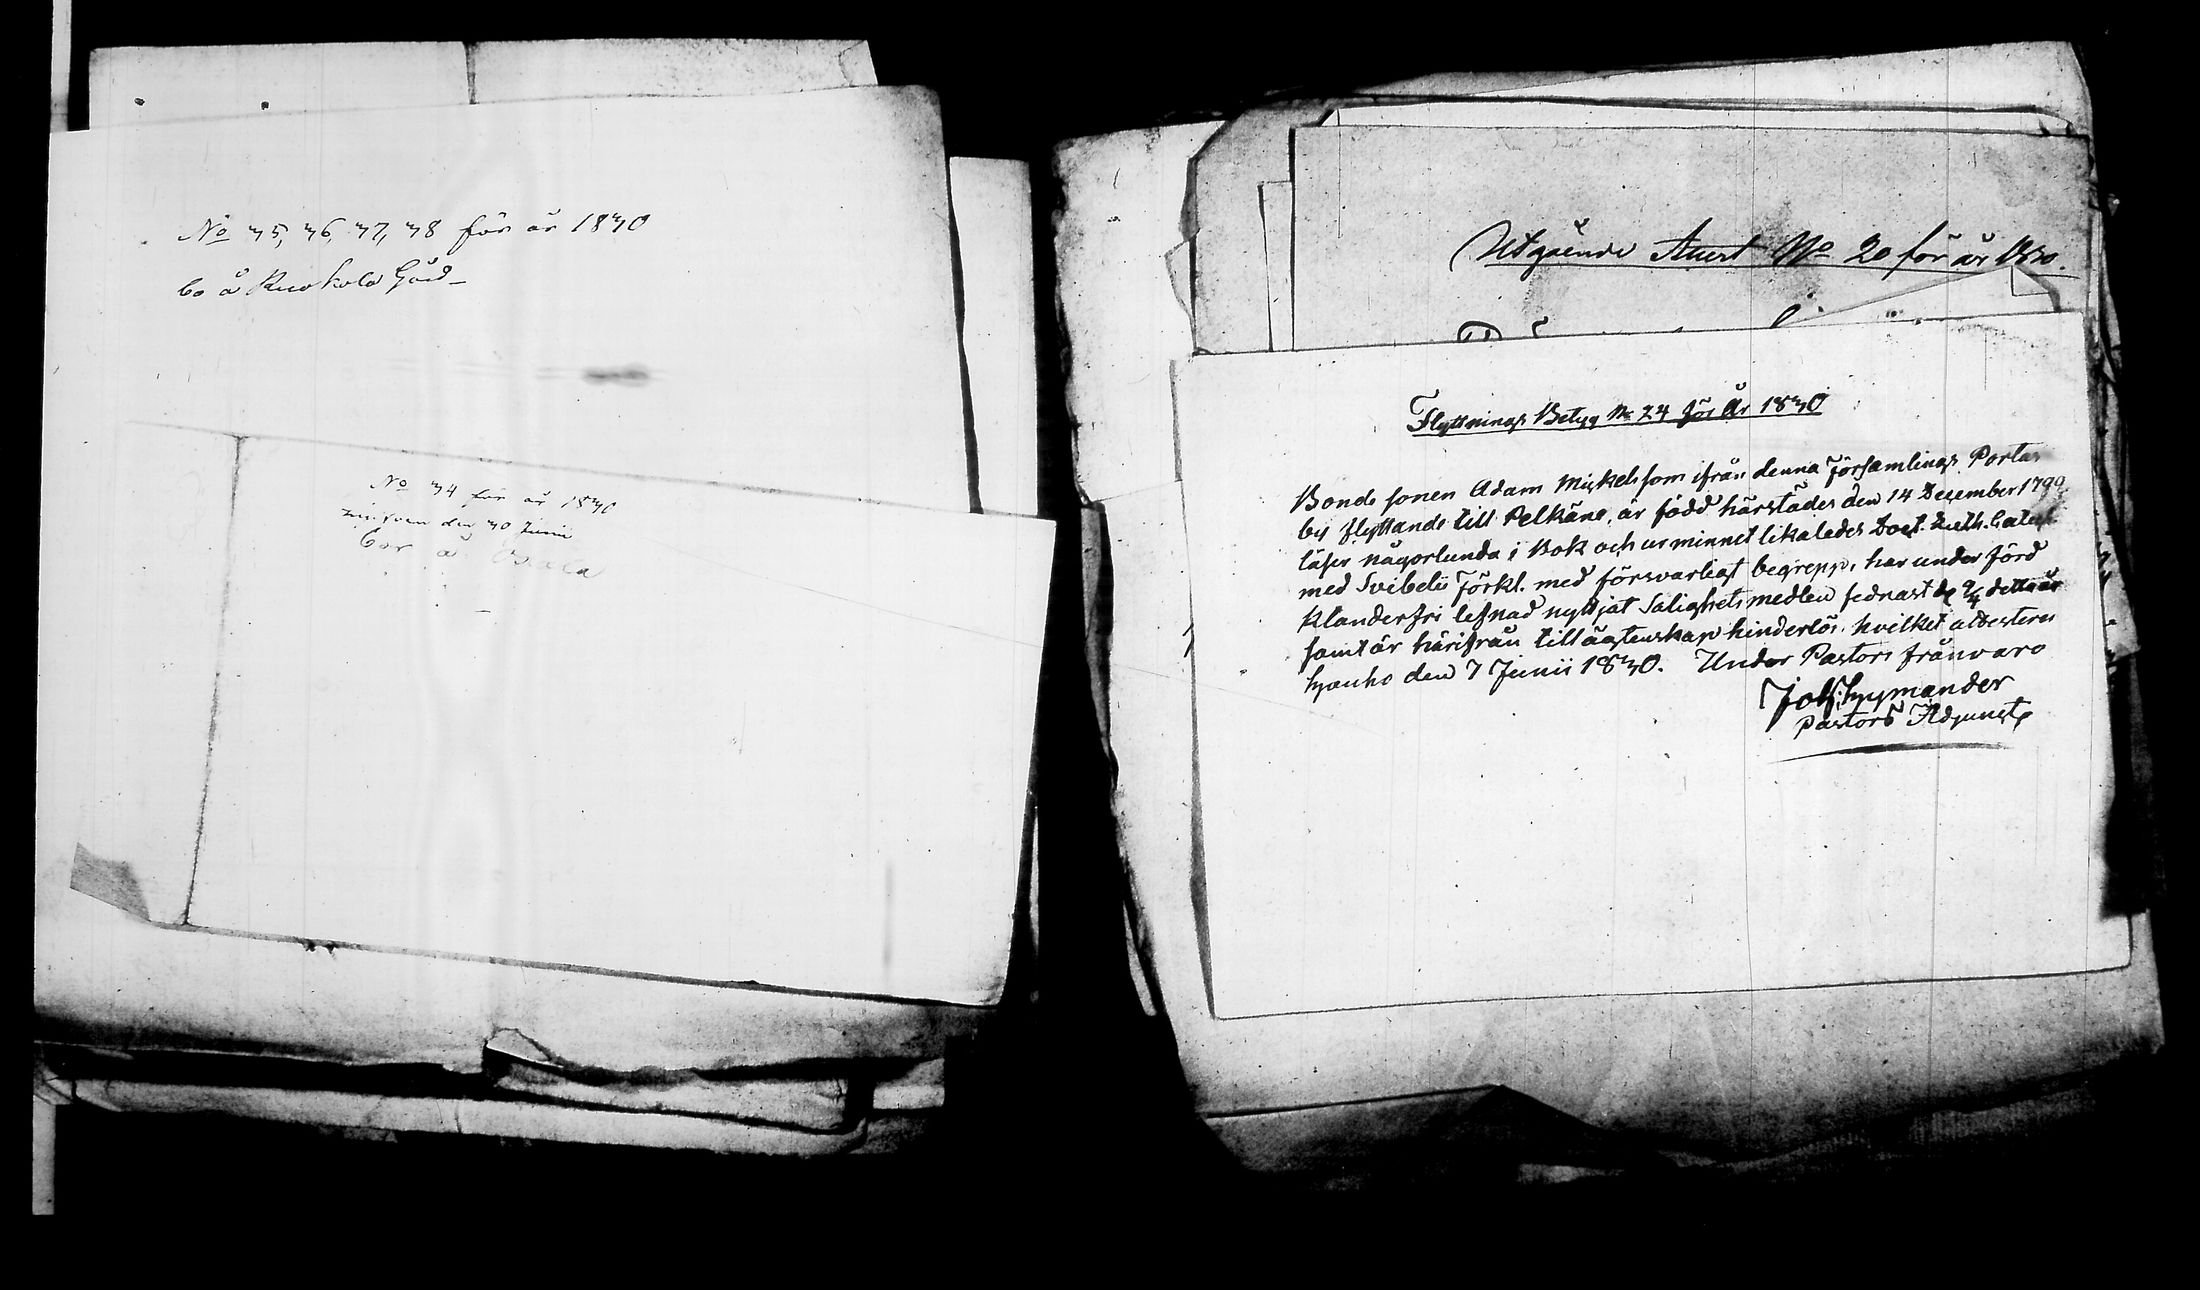 No 35, 36, 37, 38 för år 1830
bo å Ruokola Gård
No 34 för år 1830
den 30 Junii
å
Utgående Attest No 20 för år 1830.
Flyttnings Betyg No 24 för År 1830
Bonde sonen Adam Mickelsson ifrån denna Församlings Portas
by flyttande till Pelkäne, är född härstädes den 14 December 1799
läser någorlunda i Bok och ur minnet likaledes Doct. Luth. Catech.
med Svibelii Förkl. med försvarligt begrepp, har under förd
klanderfri lefnad nyttjat Salighets medlen sednast d. 9/4 detta år
samt är härifrån till ägtenskap hinderlös. hvilket attesteras
Hauho den 7 Junii 1830. Under Pastors frånvaro
Joh: Hymander
Pastors Adjunct